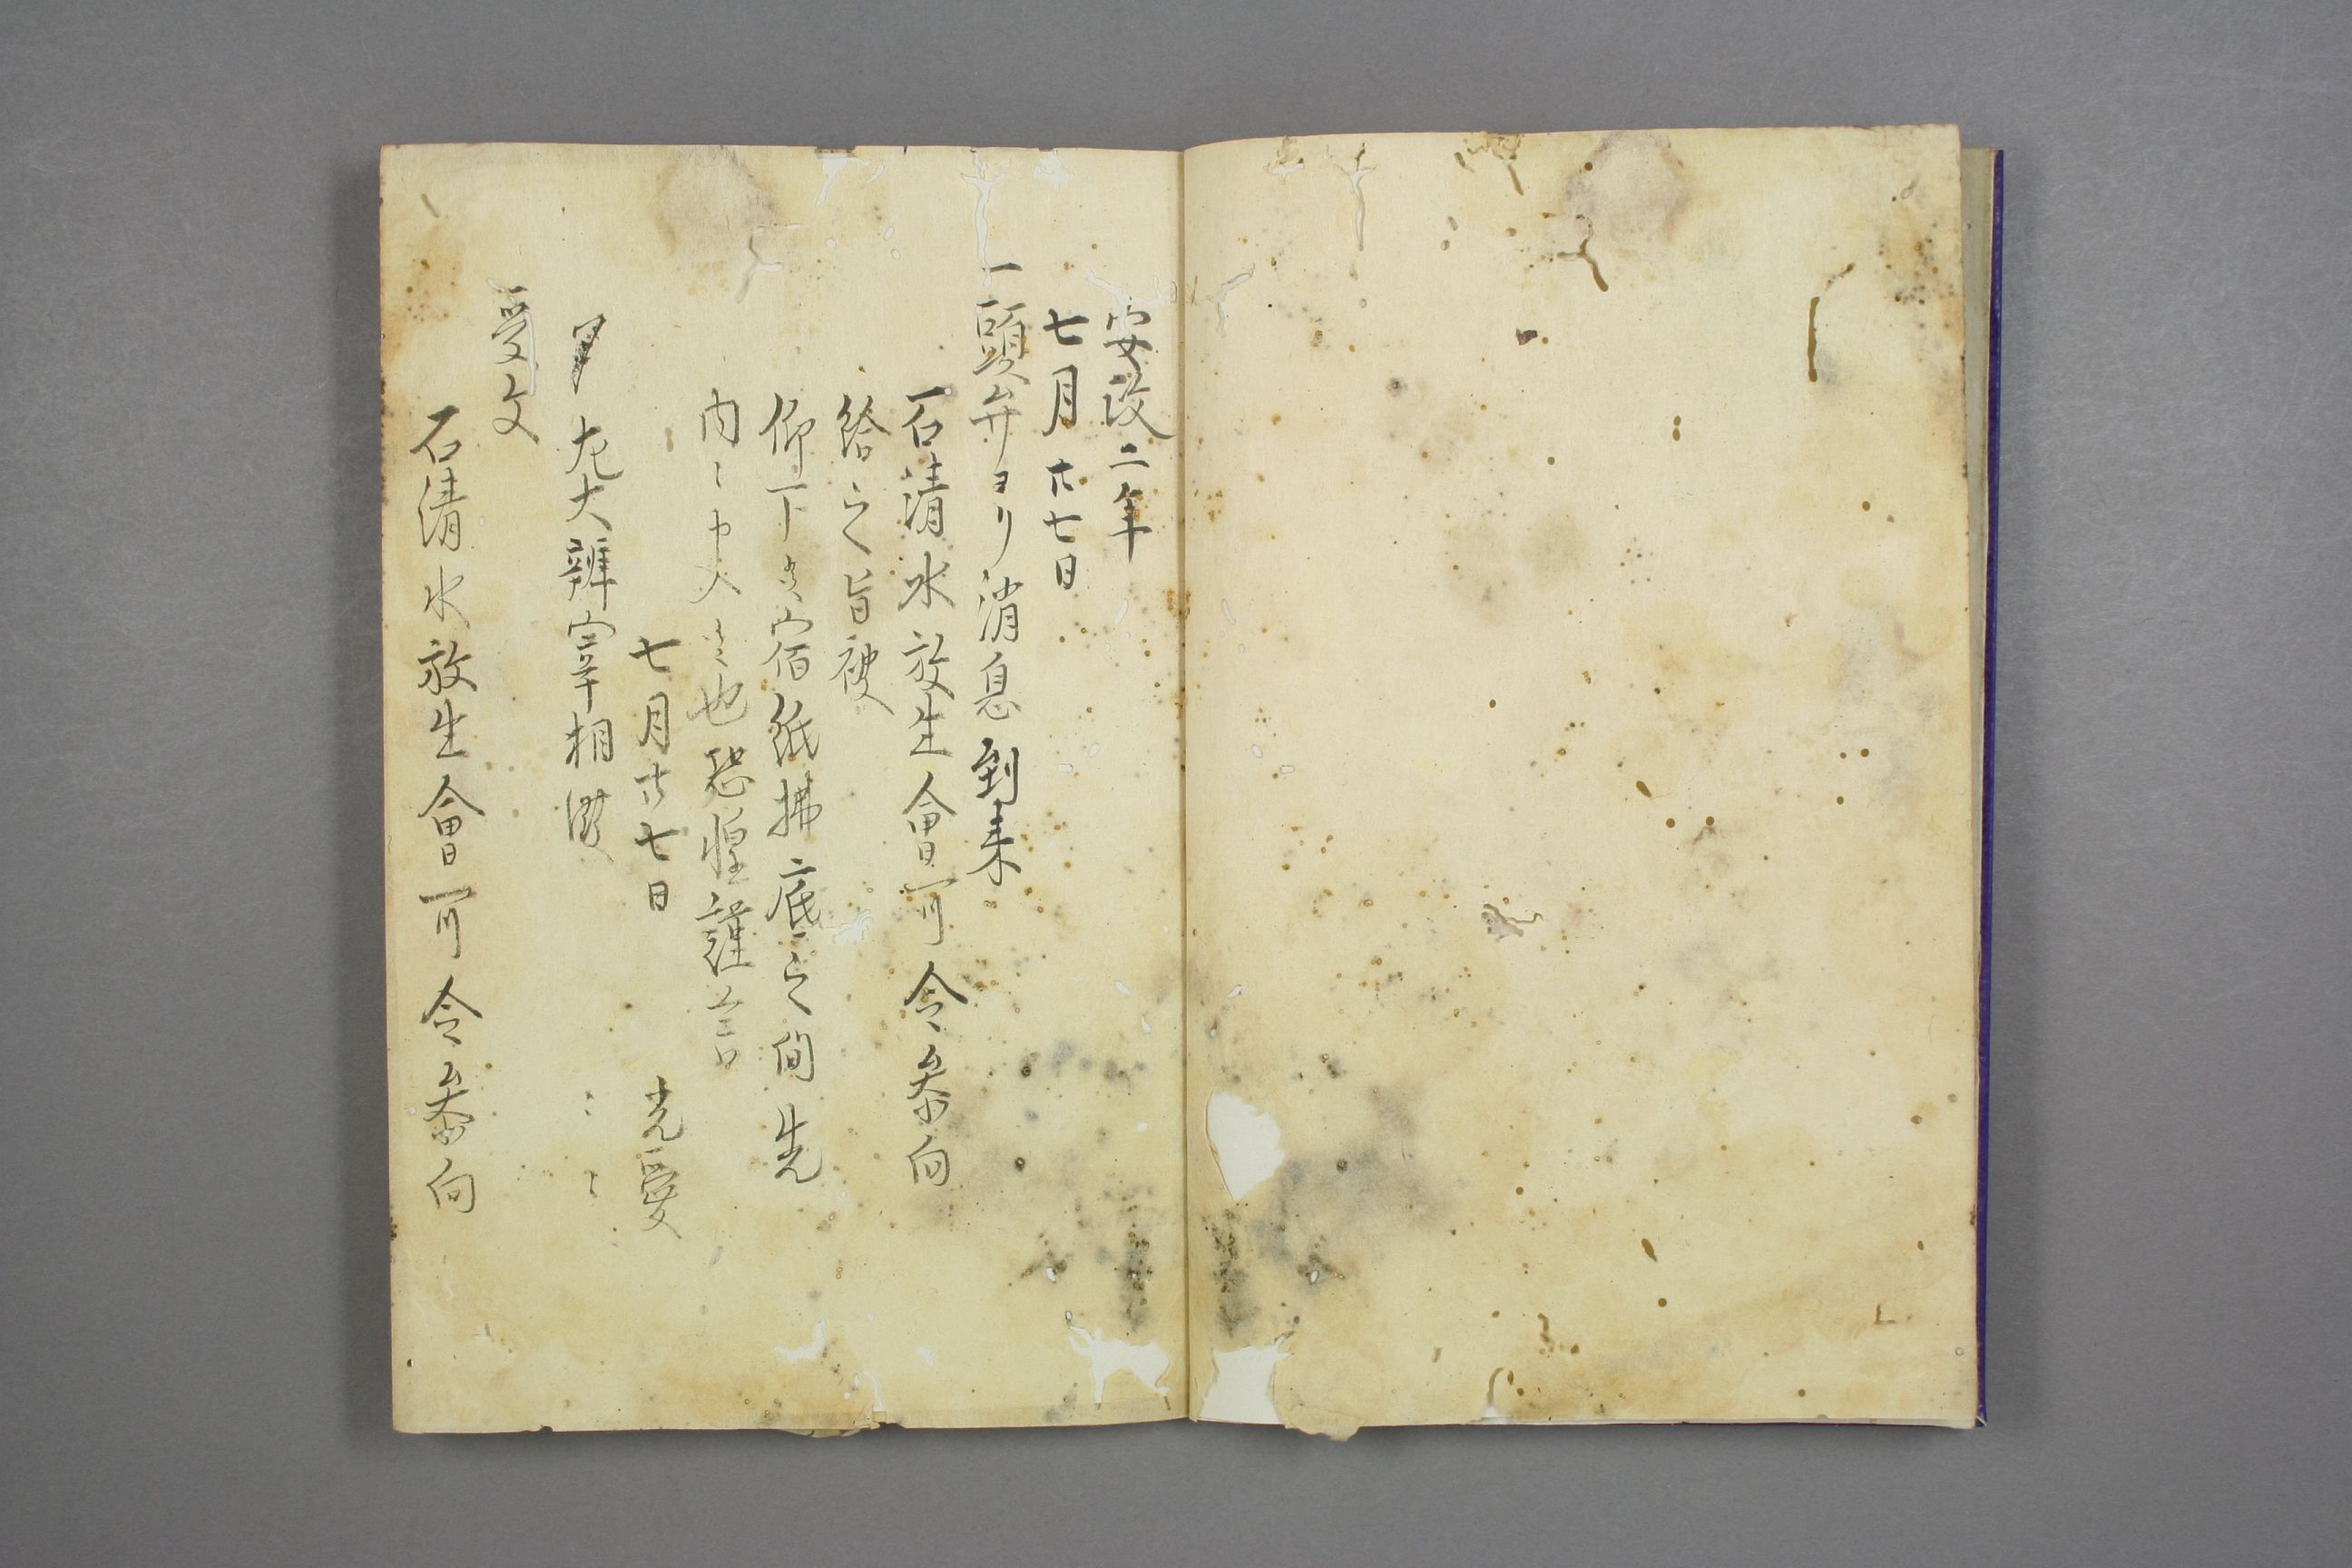 安政二年
七月廿七日
一頭弁ヨリ消息到来
石清水放生會可令参向
給之旨被
仰下候宿紙拂底之間先
内々申入候也恐惶謹言
七月廿七日　光愛
左大辨宰相殿
受文
石清水放生會可令参向